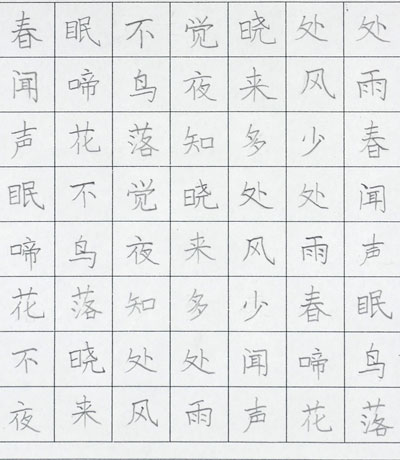 春眠不觉晓处处
闻啼鸟夜来风雨
声花落知多少春
眠不觉晓处处闻
啼鸟夜来风雨声
花落知多少春眠
不晓处处闻啼鸟
夜来风雨声花落